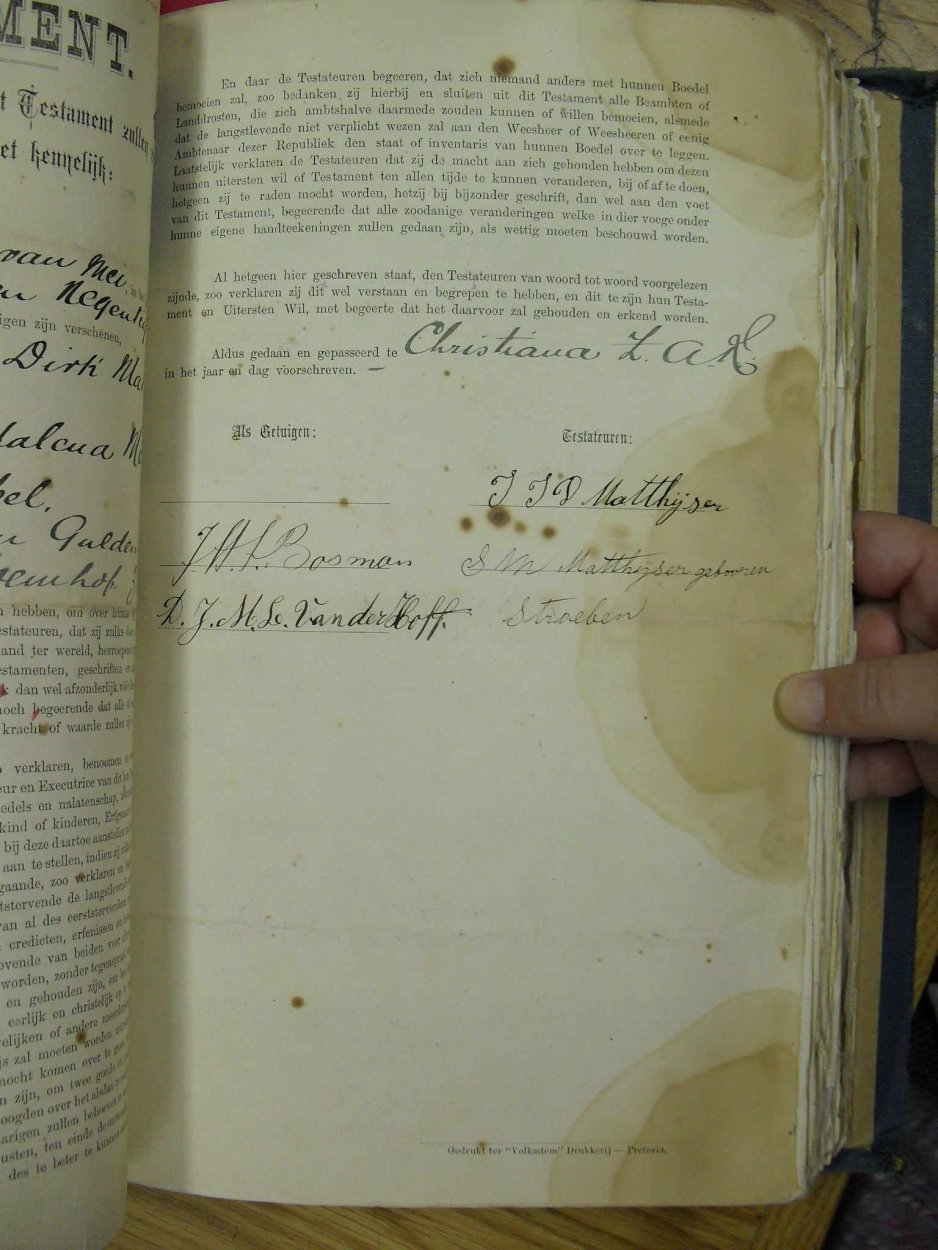 MENT.
t Testament zullen
et kennelijk:
van Mei,
en Negentig
igen zijn verschenen,
Dirk Ma
dalena M
bel.
n Gulden
oemhof.
n hebben, om over hunne
estateuren, dat zij zulks
and ter wereld, herroepende
estamenten, geschriften
k dan wel afzonderlijk
noch begeerende dat alle
kracht of waarde zullen
verklaren, benoemen
eur en Executrice van dit
edels en nalatenschap,
kind of kinderen,
bij deze daartoe aanstellen
aan te stellen, indien zij
gaande, zoo verklaren
tstervende de langstlevende
van al des eerststervenden
credieten, erfenissen
ovende van beiden voor
worden, zonder tegenspraak
en gehouden zijn, om het
eerlijk en christelijk op
elijken of andere
js zal moeten worden
mocht komen over te gaan
n zijn, om twee goede
oogden over het alsdan
arigen zullen behoeven
usten, ten einde
des te beter te kunnen
En daar de Testateuren begeeren, dat zich niemand anders met hunnen Boedel
bemoeien zal, zoo bedanken zij hierbij en sluiten uit dit Testament alle Beambten of
Landdrosten, die zich ambtshalve daarmede zouden kunnen of willen bemoeien, alsmede
dat de langstlevende niet verplicht wezen zal aan den Weesheer of Weesheeren of eenig
Ambtenaar dezer Republiek den staat of inventaris van hunnen Boedel over te leggen.
Laatstelijk verklaren de Testateuren dat zij de macht aan zich gehouden hebben om dezen
hunnen uitersten wil of Testament ten allen tijde te kunnen veranderen, bij of af te doen,
hetgeen zij te raden mocht worden, hetzij bij bijzonder geschrift, dan wel aan den voet
van dit Testament, begeerende dat alle zoodanige veranderingen welke in dier voege onder
hunne eigene handteekeningen zullen gedaan zijn, als wettig moeten beschouwd worden.
Al hetgeen hier geschreven staat, den Testateuren van woord tot woord voorgelezen
zijnde, zoo verklaren zij dit wel verstaan en begrepen te hebben, en dit te zijn hun Testa-
ment en Uitersten Wil, met begeerte dat het daarvoor zal gehouden en erkend worden.
Aldus gedaan en gepasseerd te Christiana Z. A. R.
in het jaar en dag voorschreven. —
Als Getuigen: Testateuren:
J J D Matthijser
J. H. L. Bosman S M Matthijser gebooren
D. J. M. Le. Van der Hoff. Stroeben
Gedrukt ter "Volksstem" Drukkerij — Pretoria.